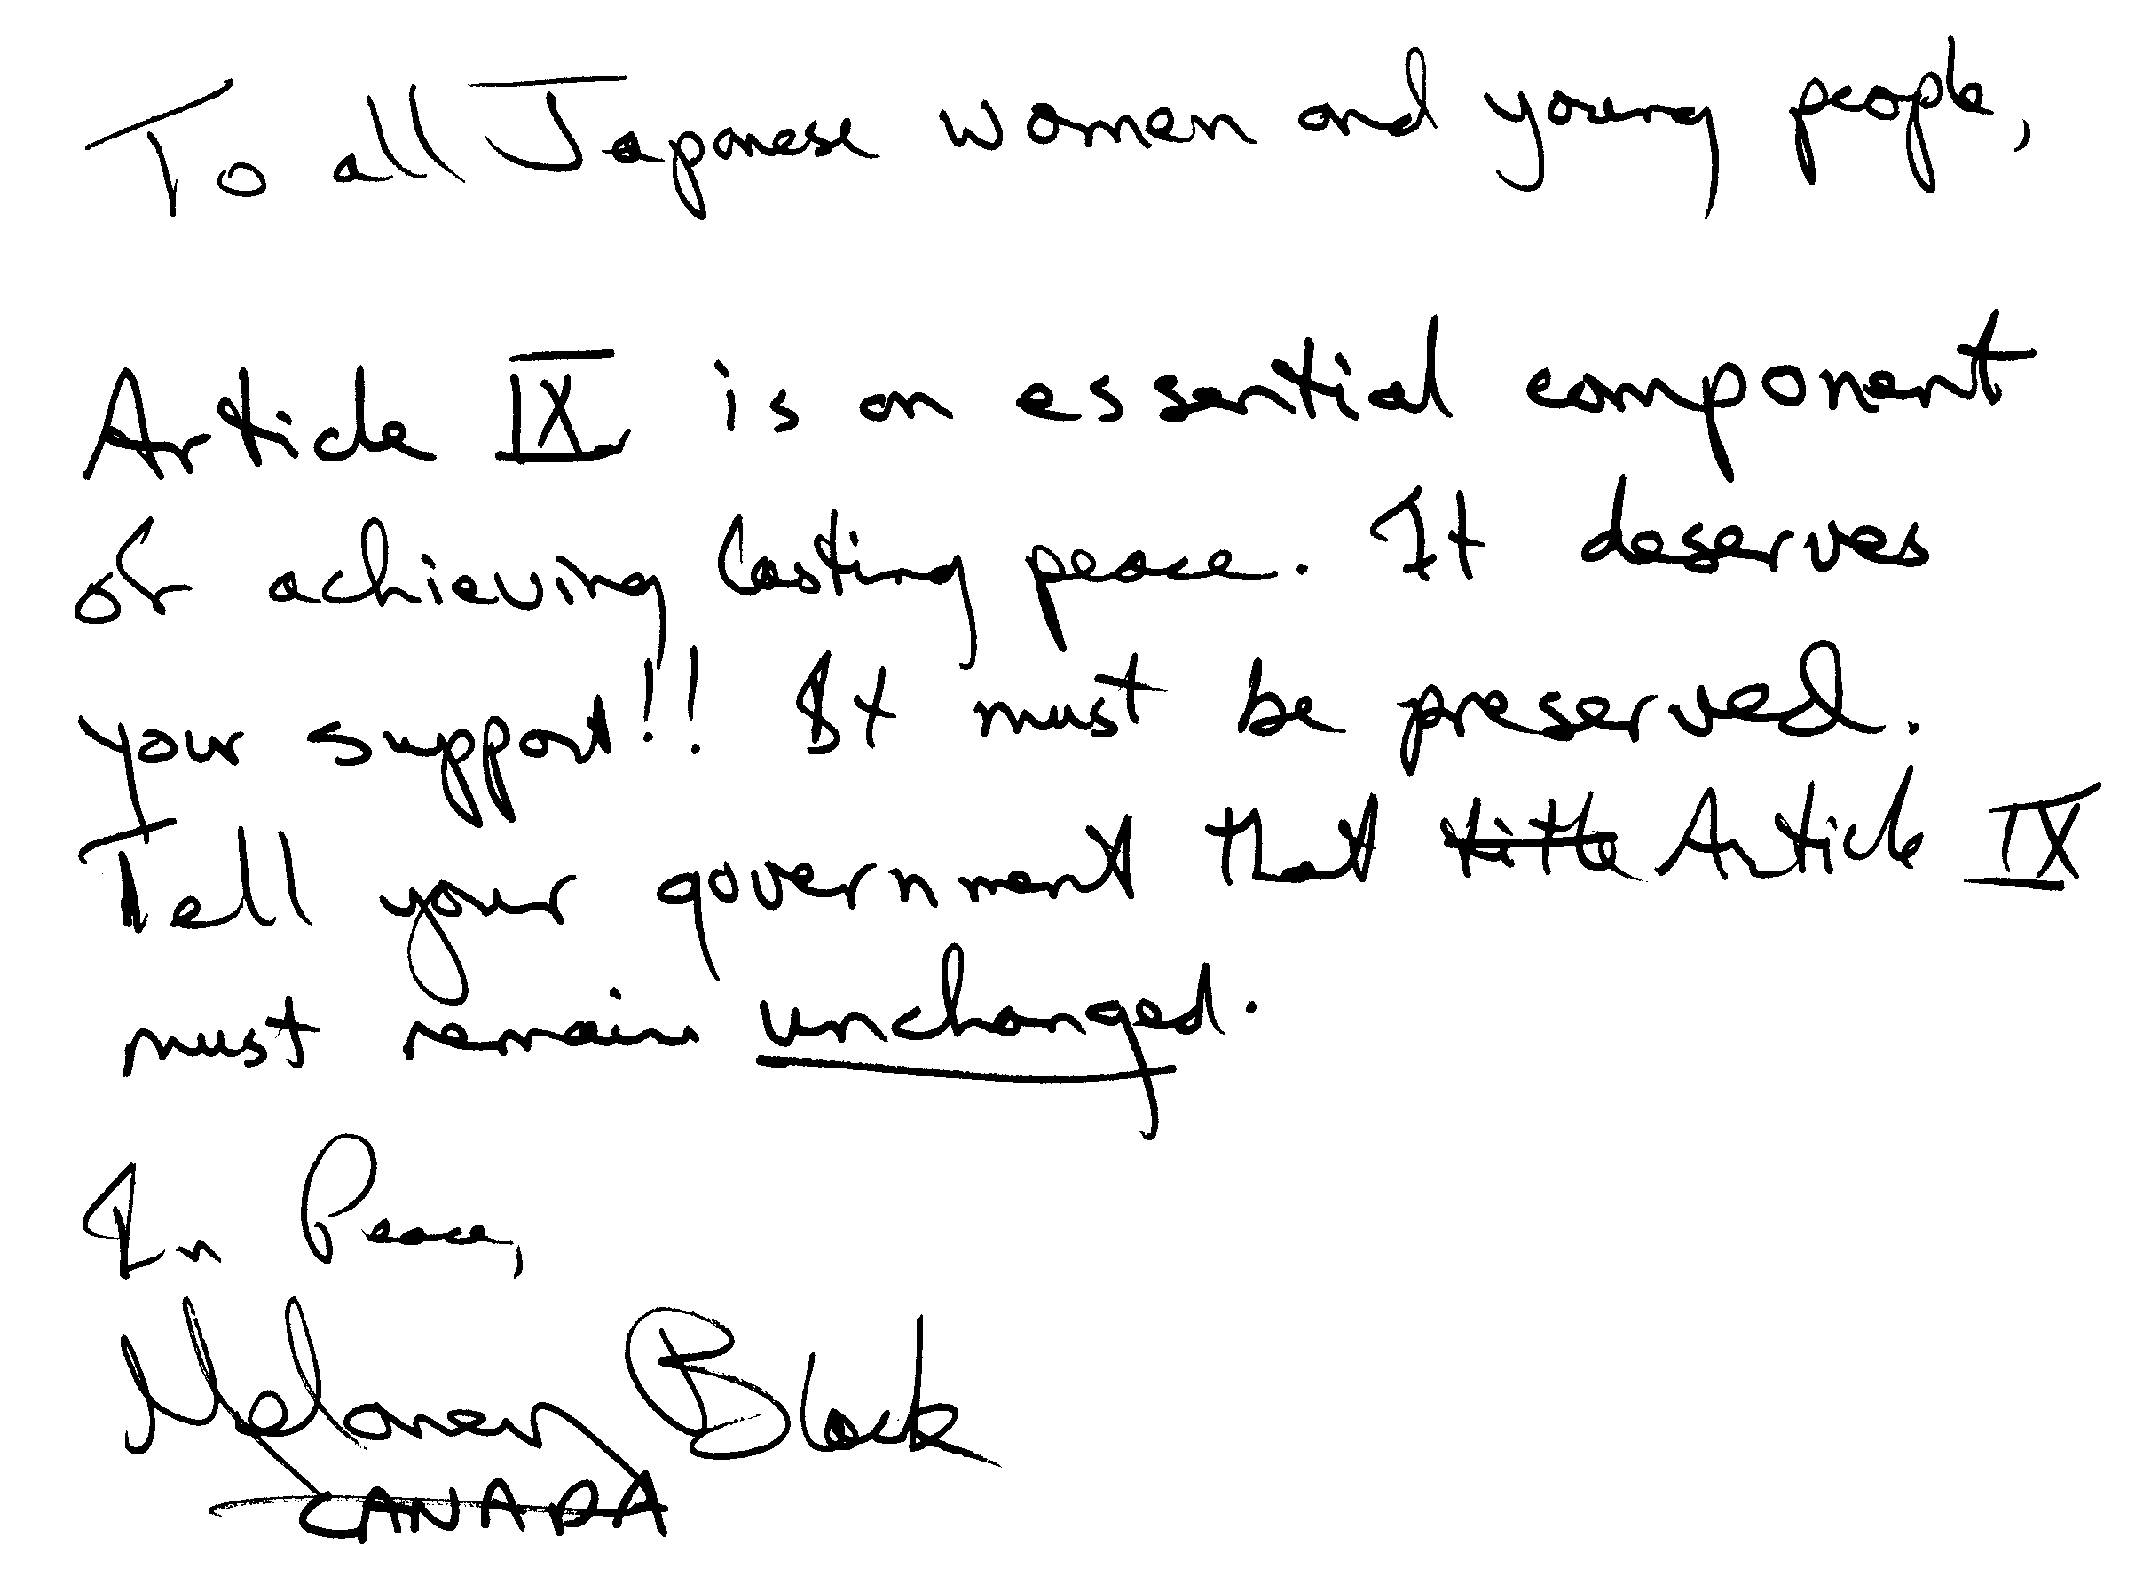 To all Japanese women and young people,
Article IX is an essential component
of achieving lasting peace. It deserves
your support!! It must be preserved.
Tell your government that title Article IX
must remain unchanged.
In Peace,
Black
CANADA